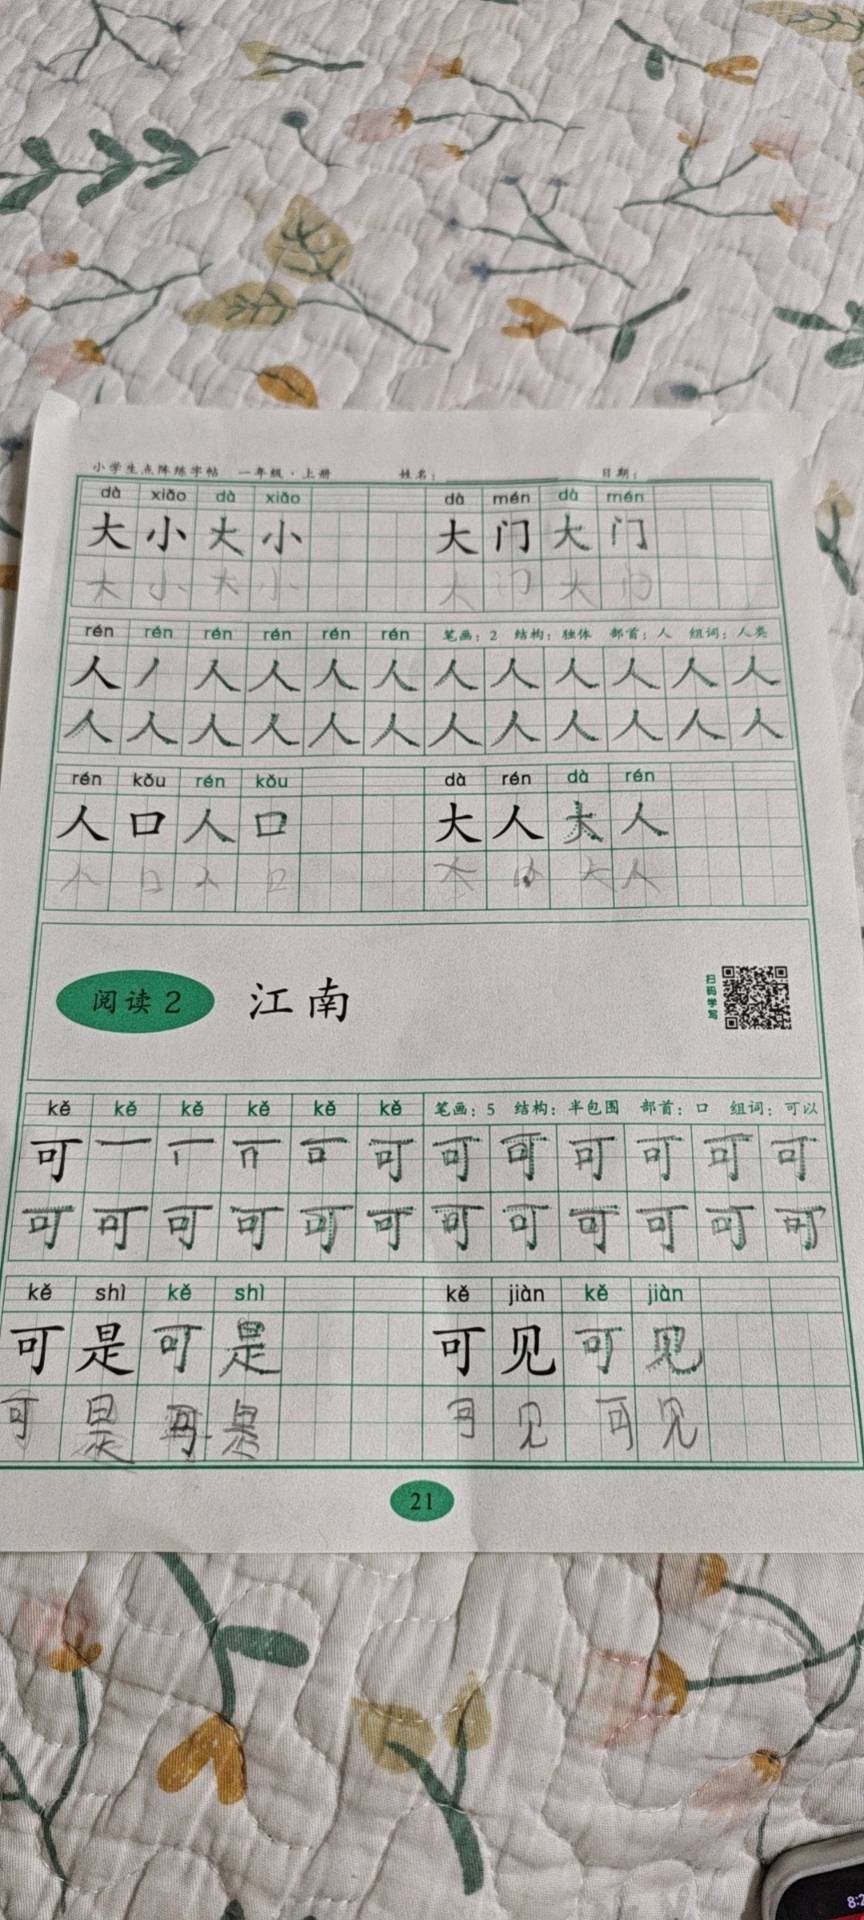 小学生点阵练字帖 一年级·上册 姓名: 日期:
dà xiǎo dà xiǎo dà mén dà mén
大 小 大 小 大 门 大 门
大 小 大 小 大 门 大 门
rén rén rén rén rén rén 笔画: 2 结构: 独体 部首: 人 组词: 人类
人 丿 人 人 人 人 人 人 人 人 人 人
人 人 人 人 人 人 人 人 人 人 人 人
rén kǒu rén kǒu dà rén dà rén
人 口 人 口 大 人 大 人
人 口 人 口 大 大 人
阅读2 江南 扫码学写
kě kě kě kě kě kě 笔画: 5 结构: 半包围 部首: 口 组词: 可以
可 一 可 可 可 可 可 可 可
可 可 可 可 可 可 可 可 可 可 可 可
kě shì kě shì kě jiàn kě jiàn
可 是 可 是 可 见 可 见
可 是 可 是 可 见 可 见
21
8:2